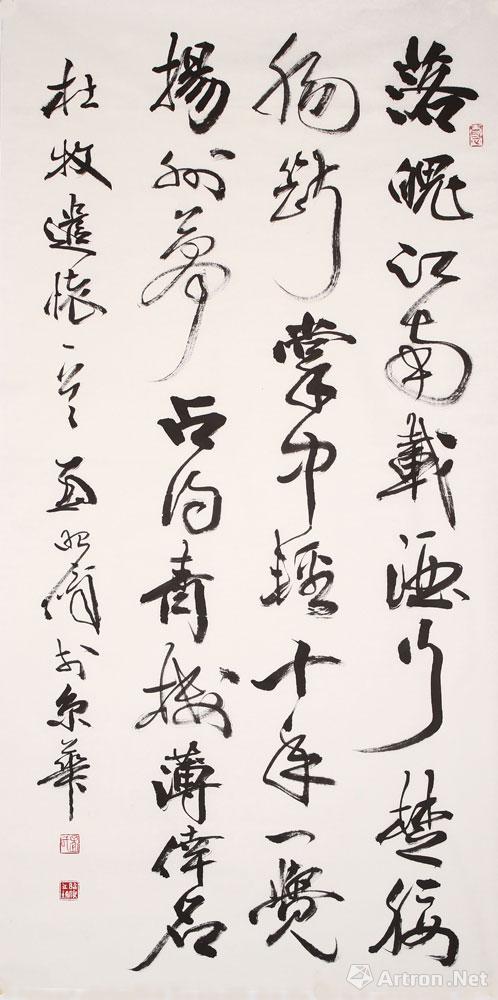 落魄江南載酒行楚腰
腸斷掌中輕十年一覺
揚州夢占得青樓薄倖名
杜牧遣懷一首 於京華
Artron.Net